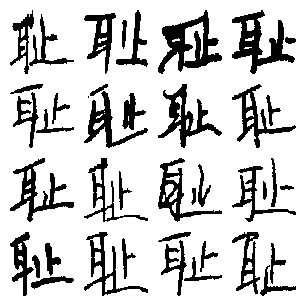 耻耻耻耻
耻耻耻耻
耻耻耻耻
耻耻耻耻